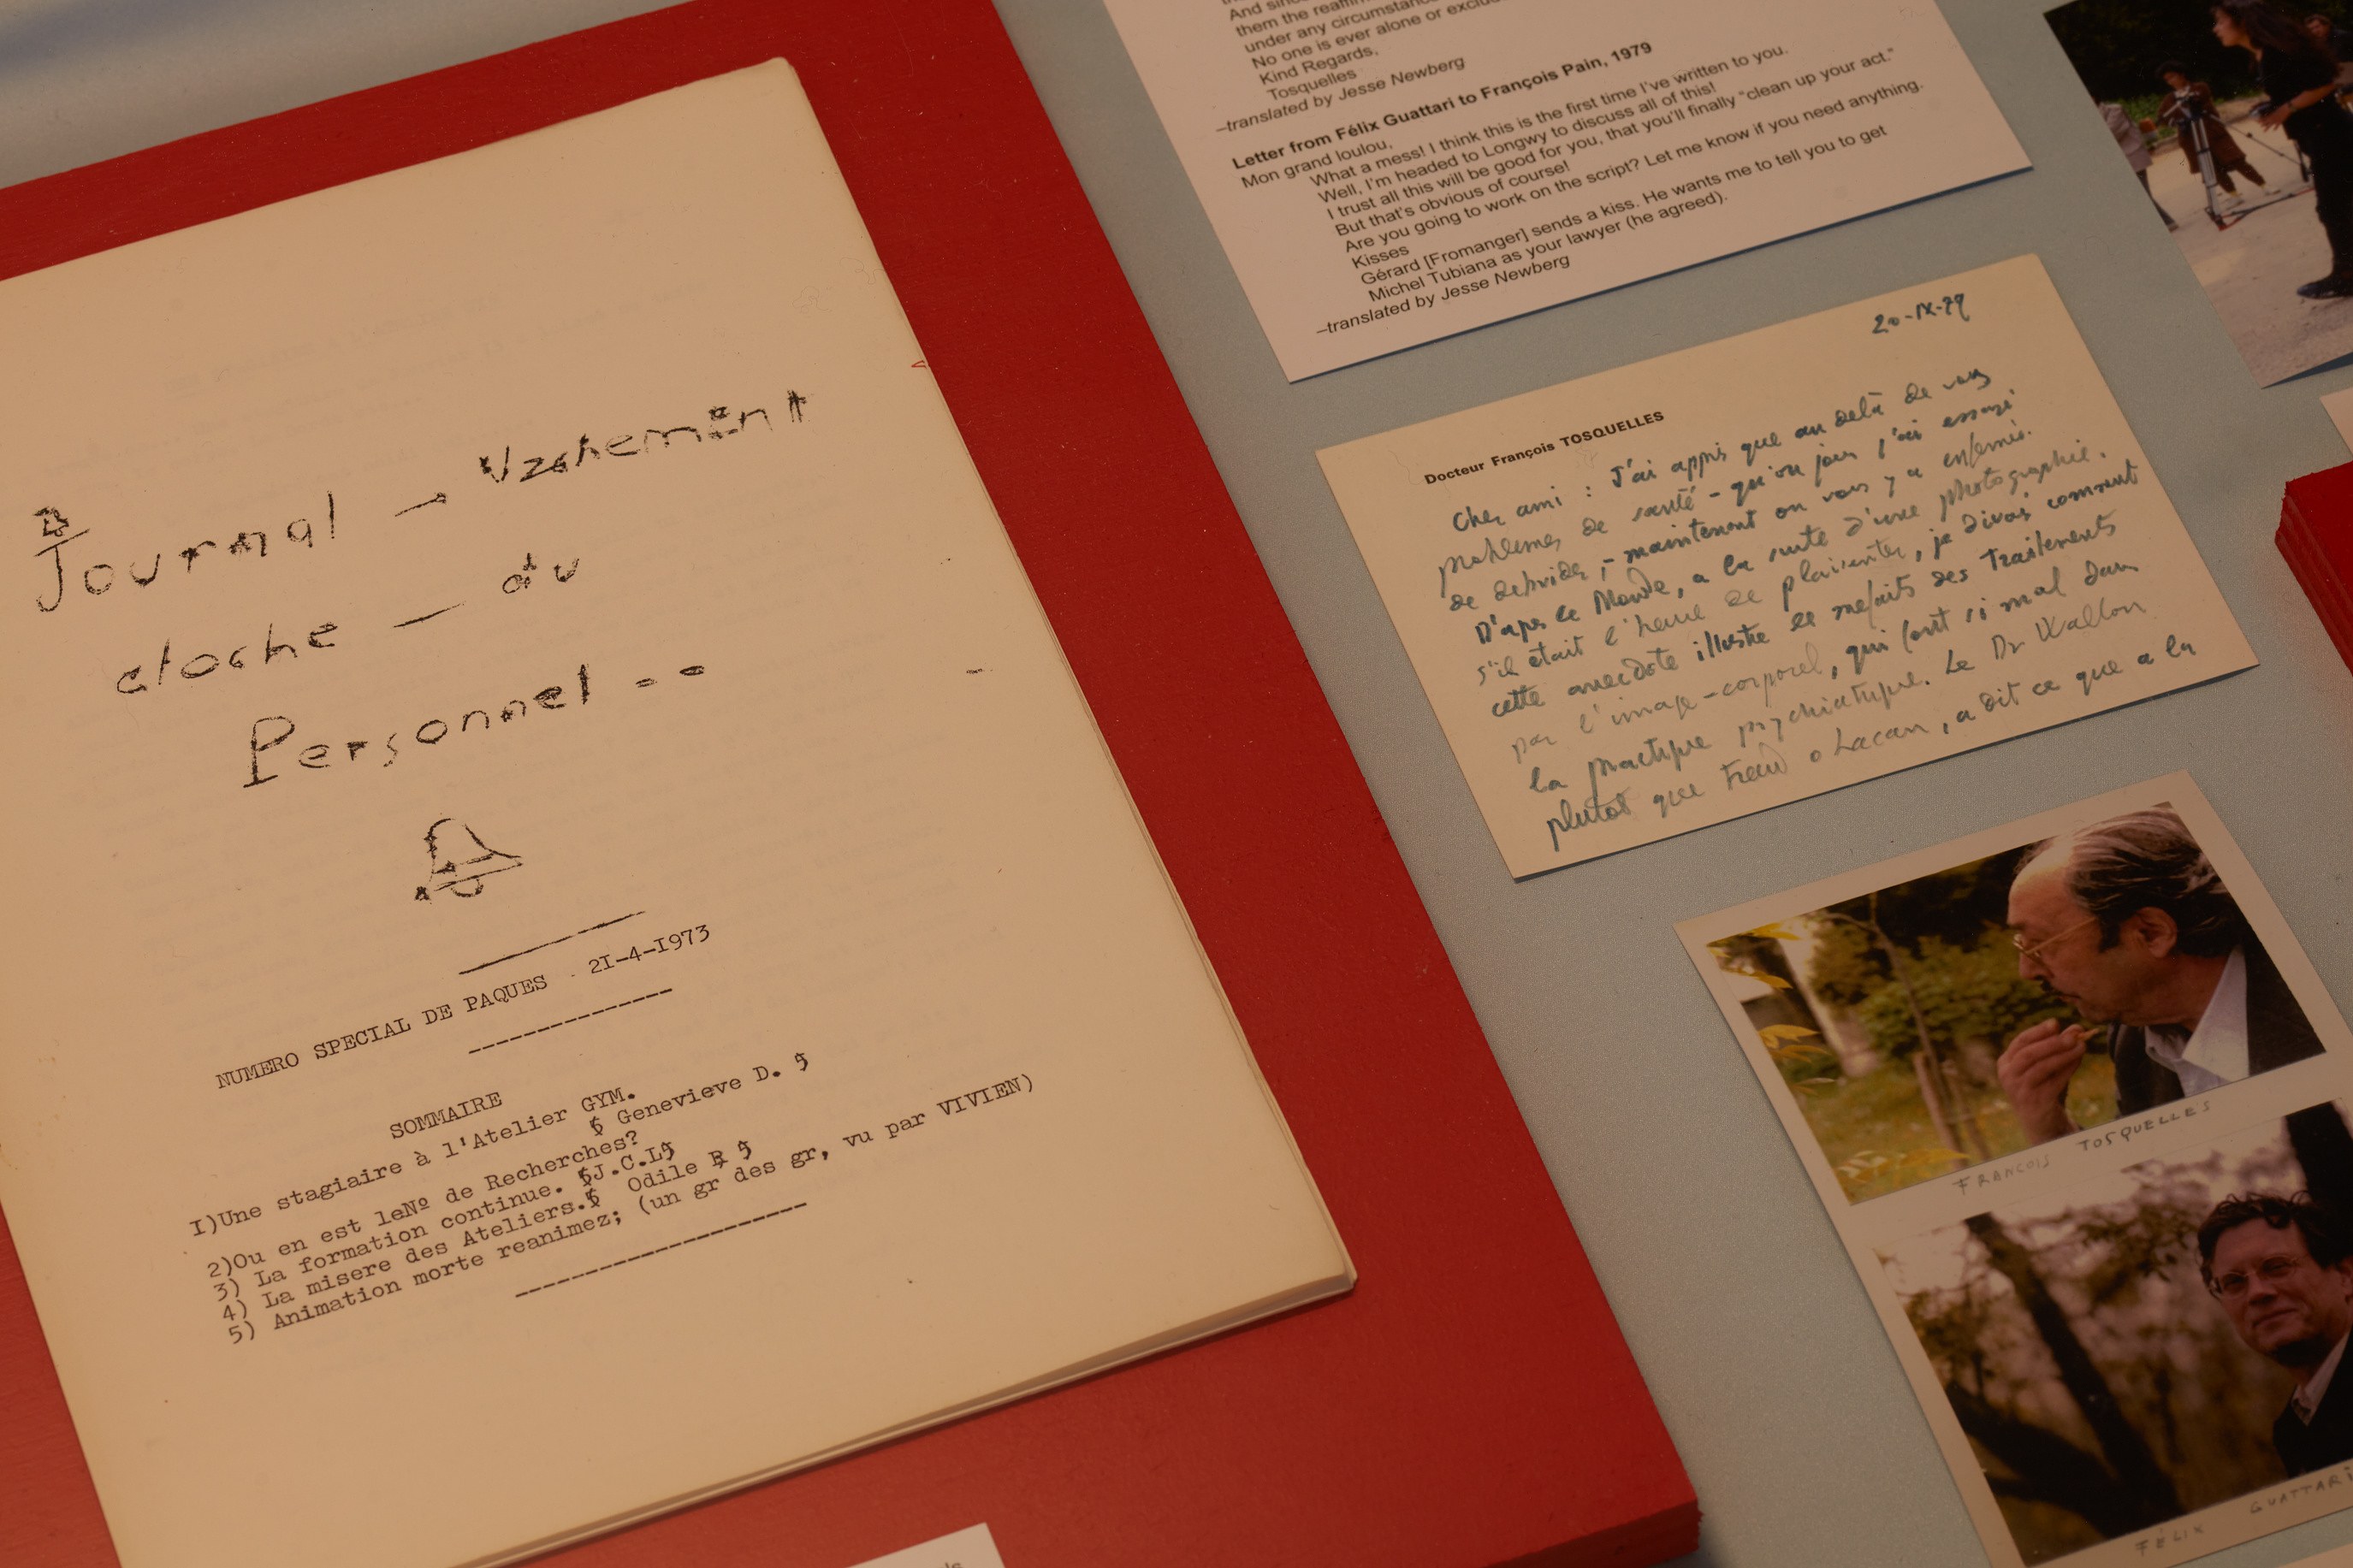 Journal - Vachement
cloche - du
Personnel - -
NUMERO SPECIAL DE PAQUES 2I-4-I973
SOMMAIRE
I)Une stagiaire à l'Atelier GYM.
Genevieve D.
2)Ou en est leNº de Recherches?
3) La formation continue. J.C.L
4) La misere des Ateliers. Odile R
5) Animation morte reanimez; (un gr des gr, vu par VIVIEN)
And
them the
under any circumstance
No one is ever alone or
Kind Regards,
Tosquelles
–translated by Jesse Newberg
Letter from Félix Guattari to François Pain, 1979
Mon grand loulou,
What a mess! I think this is the first time I've written to you.
Well, I'm headed to Longwy to discuss all of this!
I trust all this will be good for you, that you'll finally “clean up your act.”
But that's obvious of course!
Are you going to work on the script? Let me know if you need anything.
Kisses
Gérard [Fromanger] sends a kiss. He wants me to tell you to get
Michel Tubiana as your lawyer (he agreed).
–translated by Jesse Newberg
20-IX-79
Docteur François TOSQUELLES
Cher ami : J'ai appris que au delà de vos
problemes de santé - qu'on jour l'ai essayé
de - maintenant on vous y a enfermé.
D'apres le Monde, a la suite d'une photographie.
s'il était l'heure de plaisanter, je dirais comment
cette anecdote illustre les mefaits des traitements
par l'image-corporel, qui font si mal dans
la practique psychiatrique. Le Dr Wallon
plutot que Freud o Lacan, a dit ce que a la
FRANCOIS TOSQUELLES
FÉLIX GUATTARI